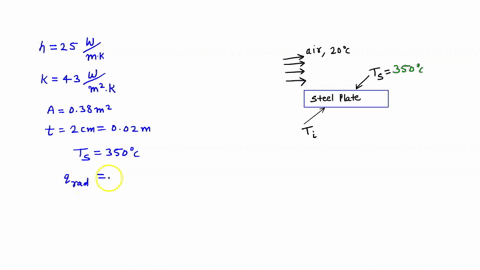 h = 25 W/m·K
K = 43 W/m².K
A = 0.38 m²
t = 2 cm = 0.02 m
Ts = 350°C
qrad = .
air, 20°C
Ts = 350°C
Steel Plate
Ti